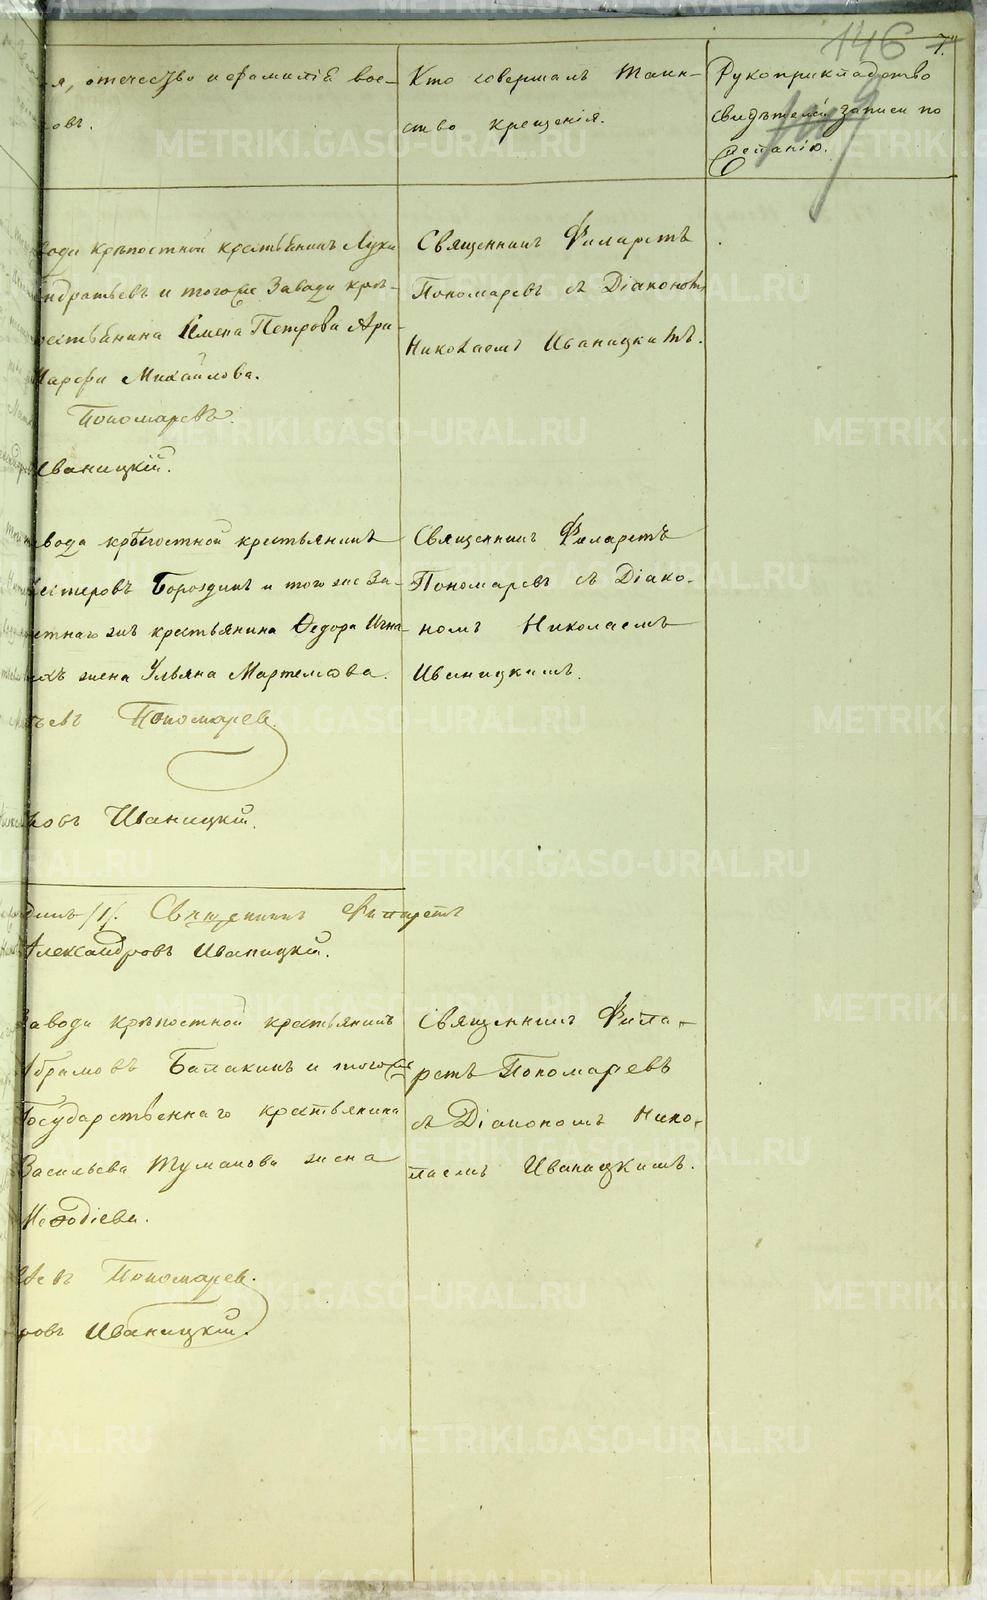 146 7.
я, отечество и фамилія вос-
ковъ.
Кто совершалъ Таин-
ство крещенія.
Рукоприкладство
свидѣтелей записи по
желанію.
вода крѣпостной крестьянинъ Лука
ндратьевъ и того же Завода крѣ-
рестьянина Петрова
Марфа Михайлова.
Пономаревъ.
Иваницкій.
Священникъ Филаретъ
Пономаревъ съ Діакономъ
Николаемъ Иваницкимъ.
вода крѣпостной крестьянинъ
Нестеровъ Бороздинъ и того же За-
стнаго крестьянина Ѳедора Игна-
жена Ульяна Мартемова.
Пономарев.
ровъ Иваницкій.
Священникъ Филаретъ
Пономаревъ съ Діако-
номъ Николаемъ
Иваницкимъ.
динъ /1/. Священникъ Филаретъ
Александровъ Иваницкій.
Завода крѣпостной крестьянинъ
Абрамовъ Балакинъ и того же
Государственнаго крестьянина
Васильева Туманова жена
Меѳодіева.
Пономарев.
ровъ Иваницкій.
Священникъ Фила-
ретъ Пономаревъ
съ Діакономъ Нико-
лаемъ Иваницкимъ.
METRIKI.GASO-URAL.RU